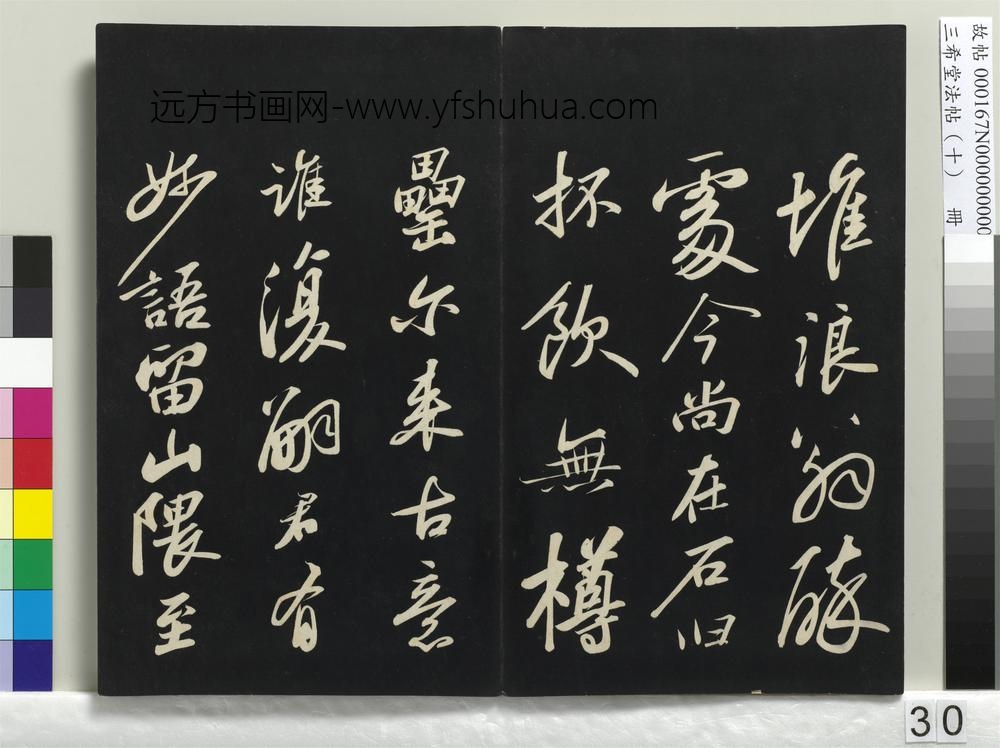 远方书画网-www.yfshuhua.com
堆浪翁醉
處今尚在石臼
抔飲無樽
罍尔来古意
誰復嗣君有
妙語留山隈至
故帖 000167N000000000
三希堂法帖（十） 冊
30